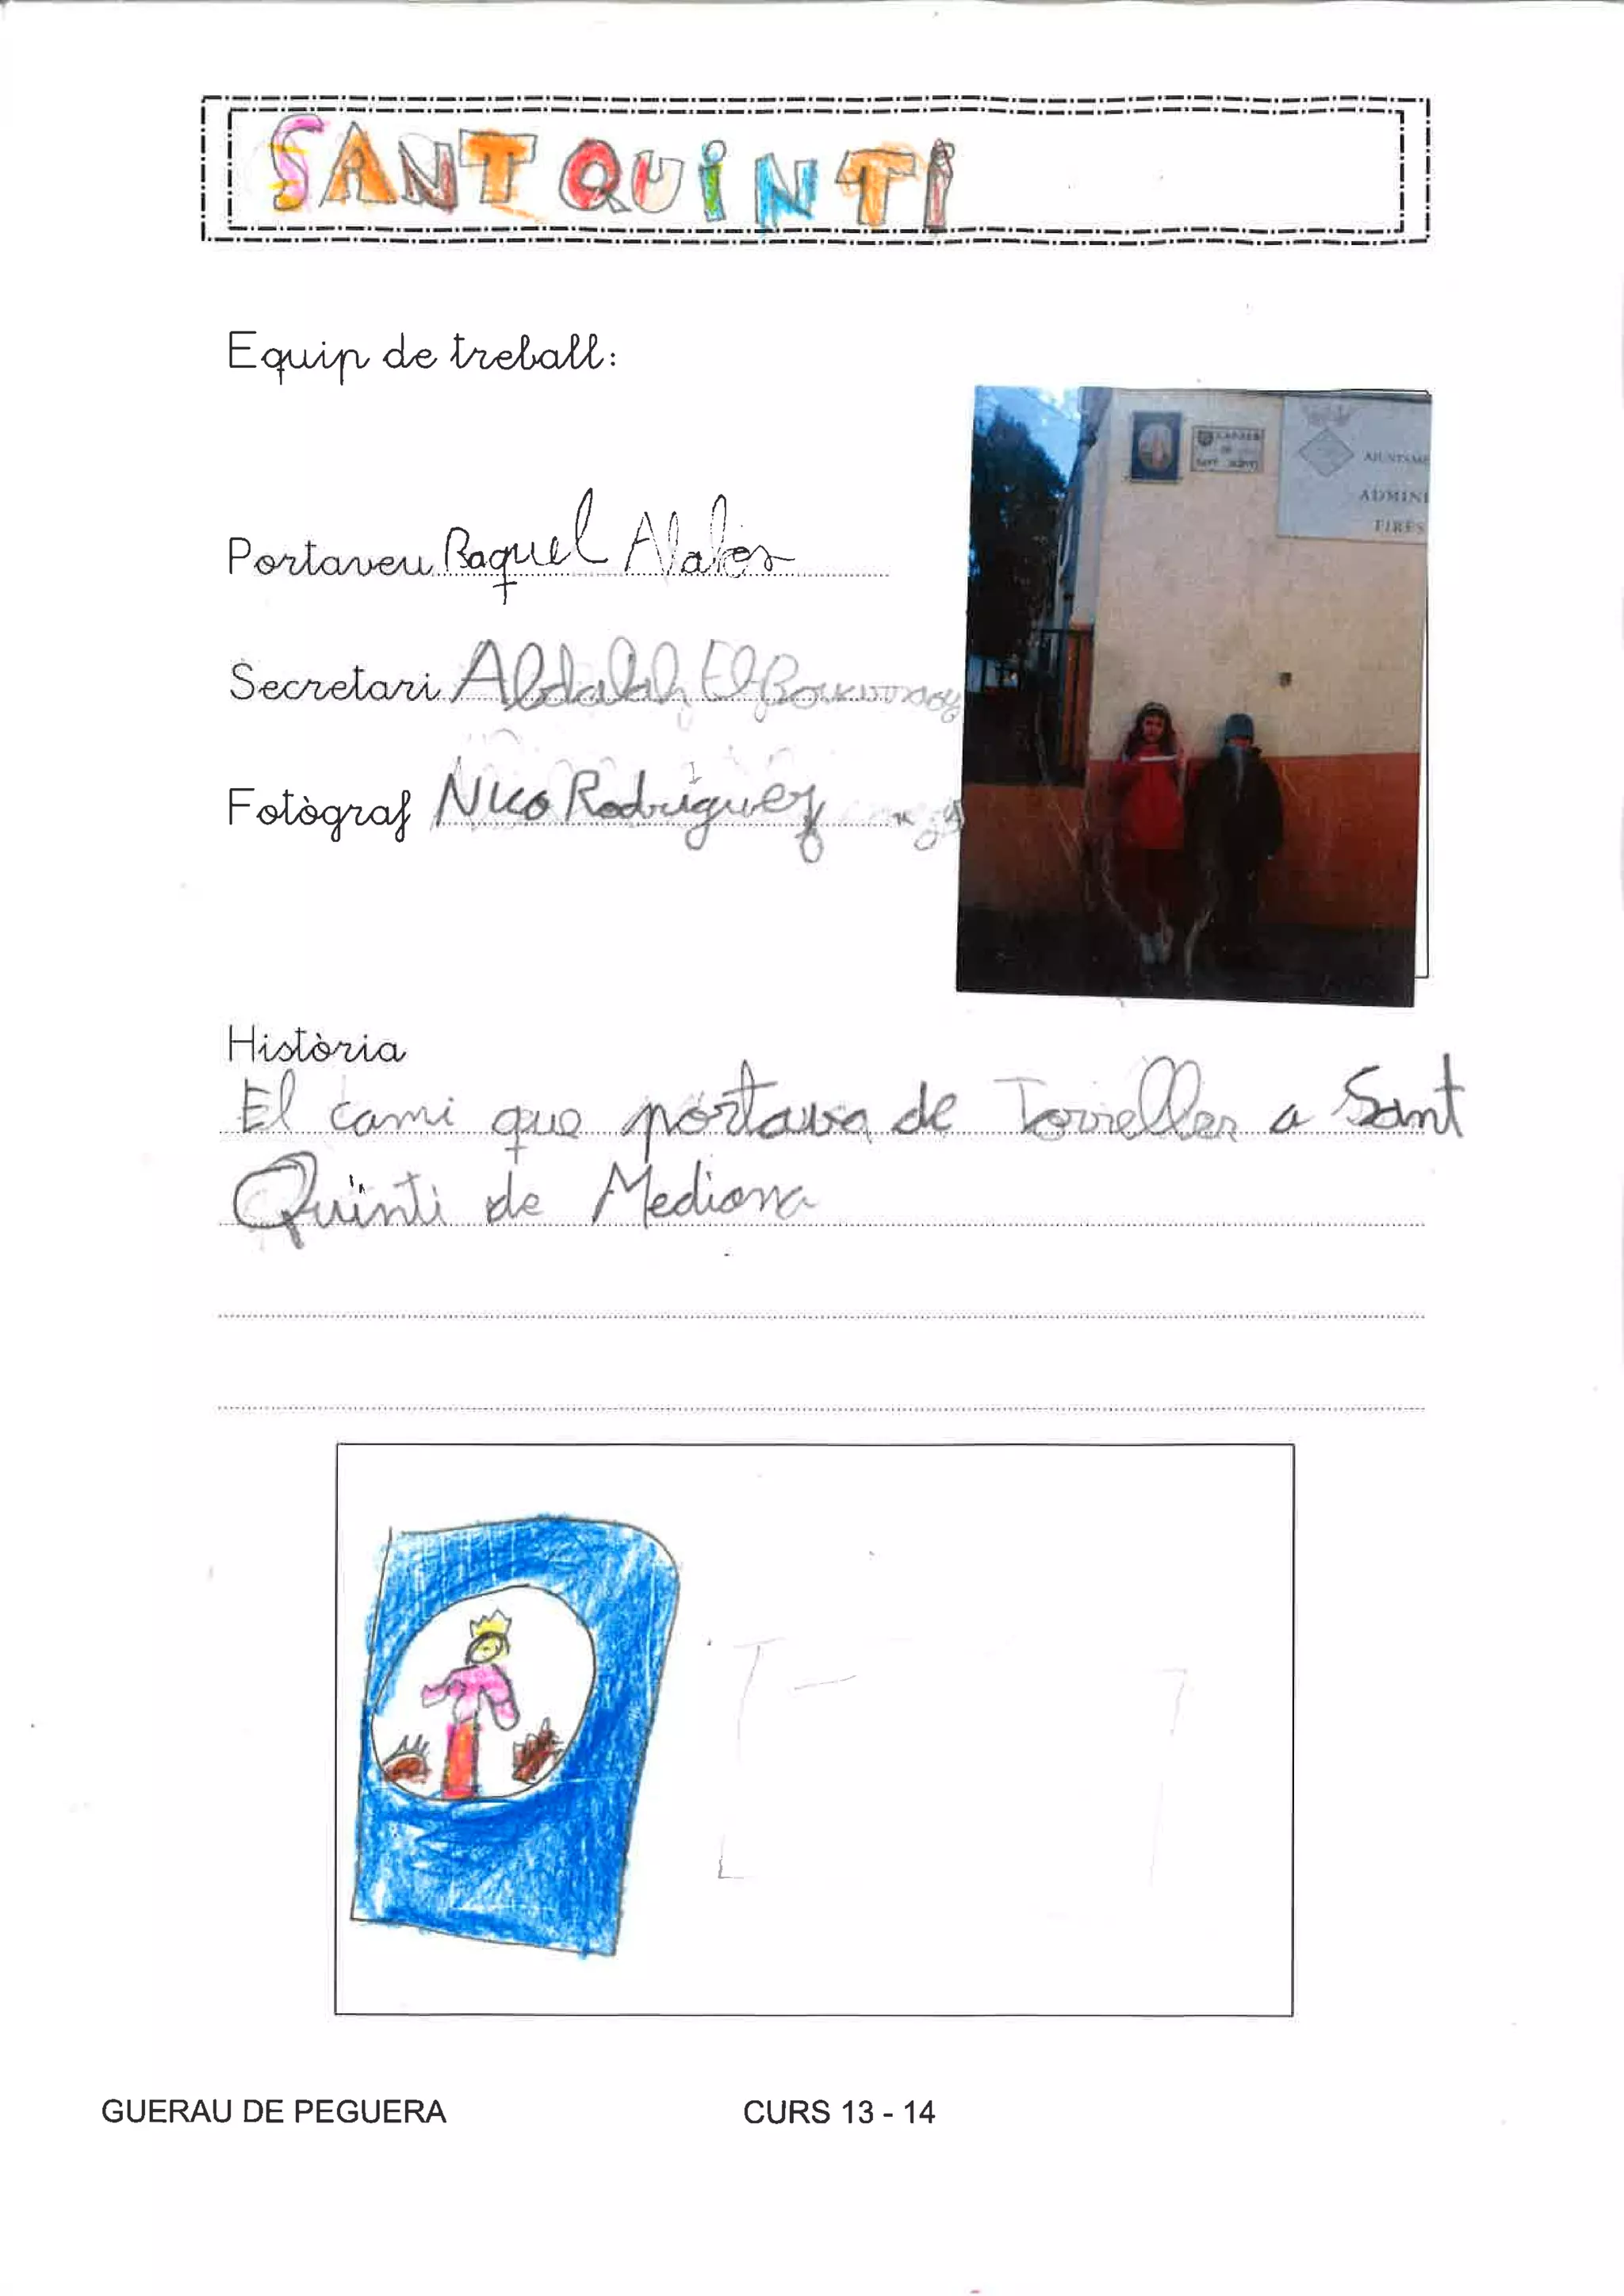 SANT QUINTI
Equip de treball:
Portaveu Raquel
Secretari Abdalah
Fotògraf Nico Rodriguez
AJUNTAME
ADMINI
FIRES
Història
El cami que portava de Torrelles a Sant
Quinti de Mediona
GUERAU DE PEGUERA CURS 13 - 14